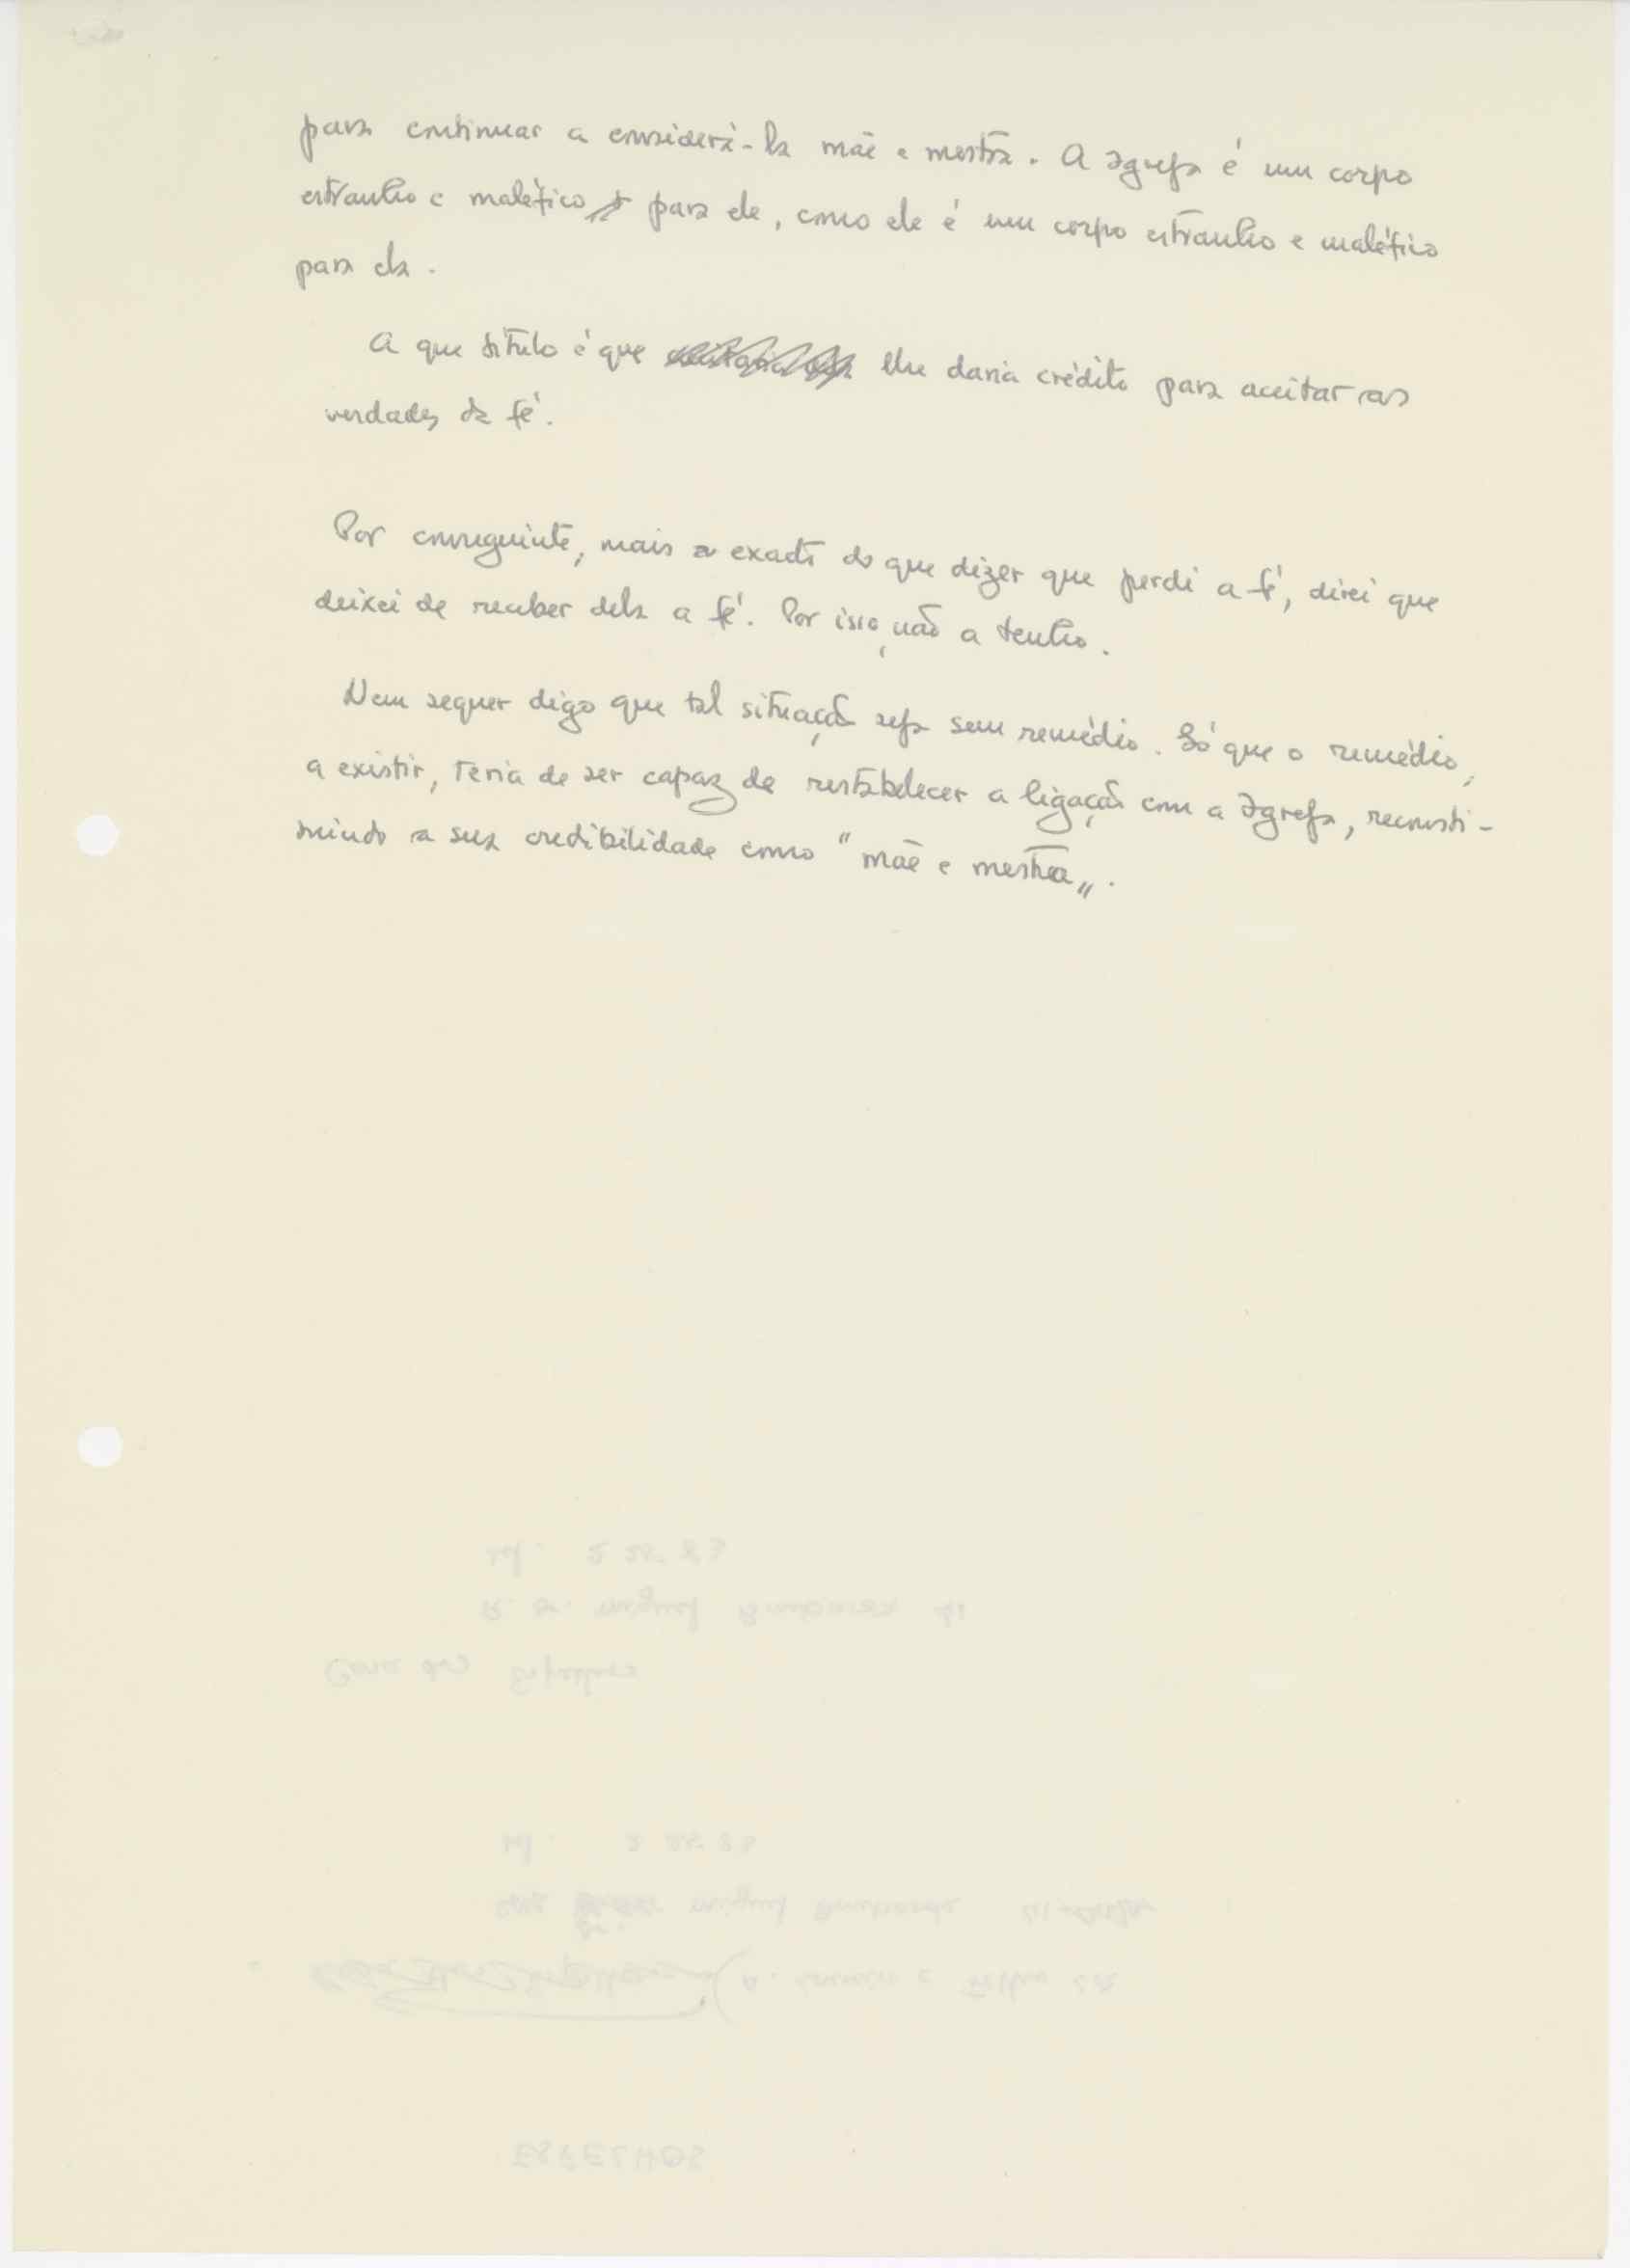 para continuar a considerá-la mãe e mestra. A Igreja é um corpo
estranho e maléfico para ele, como ele é um corpo estranho e maléfico
para ela.
A que título é que lhe daria crédito para aceitar as
verdades da fé.
Por conseguinte, mais exacto do que dizer que perdi a fé, direi que
deixei de receber dela a fé. Por isso, não a tenho.
Nem sequer digo que tal situação seja sem remédio. Só que o remédio,
a existir, teria de ser capaz de restabelecer a ligação com a Igreja, reconsti-
tuindo a sua credibilidade como "mãe e mestra".
ESPELHOS